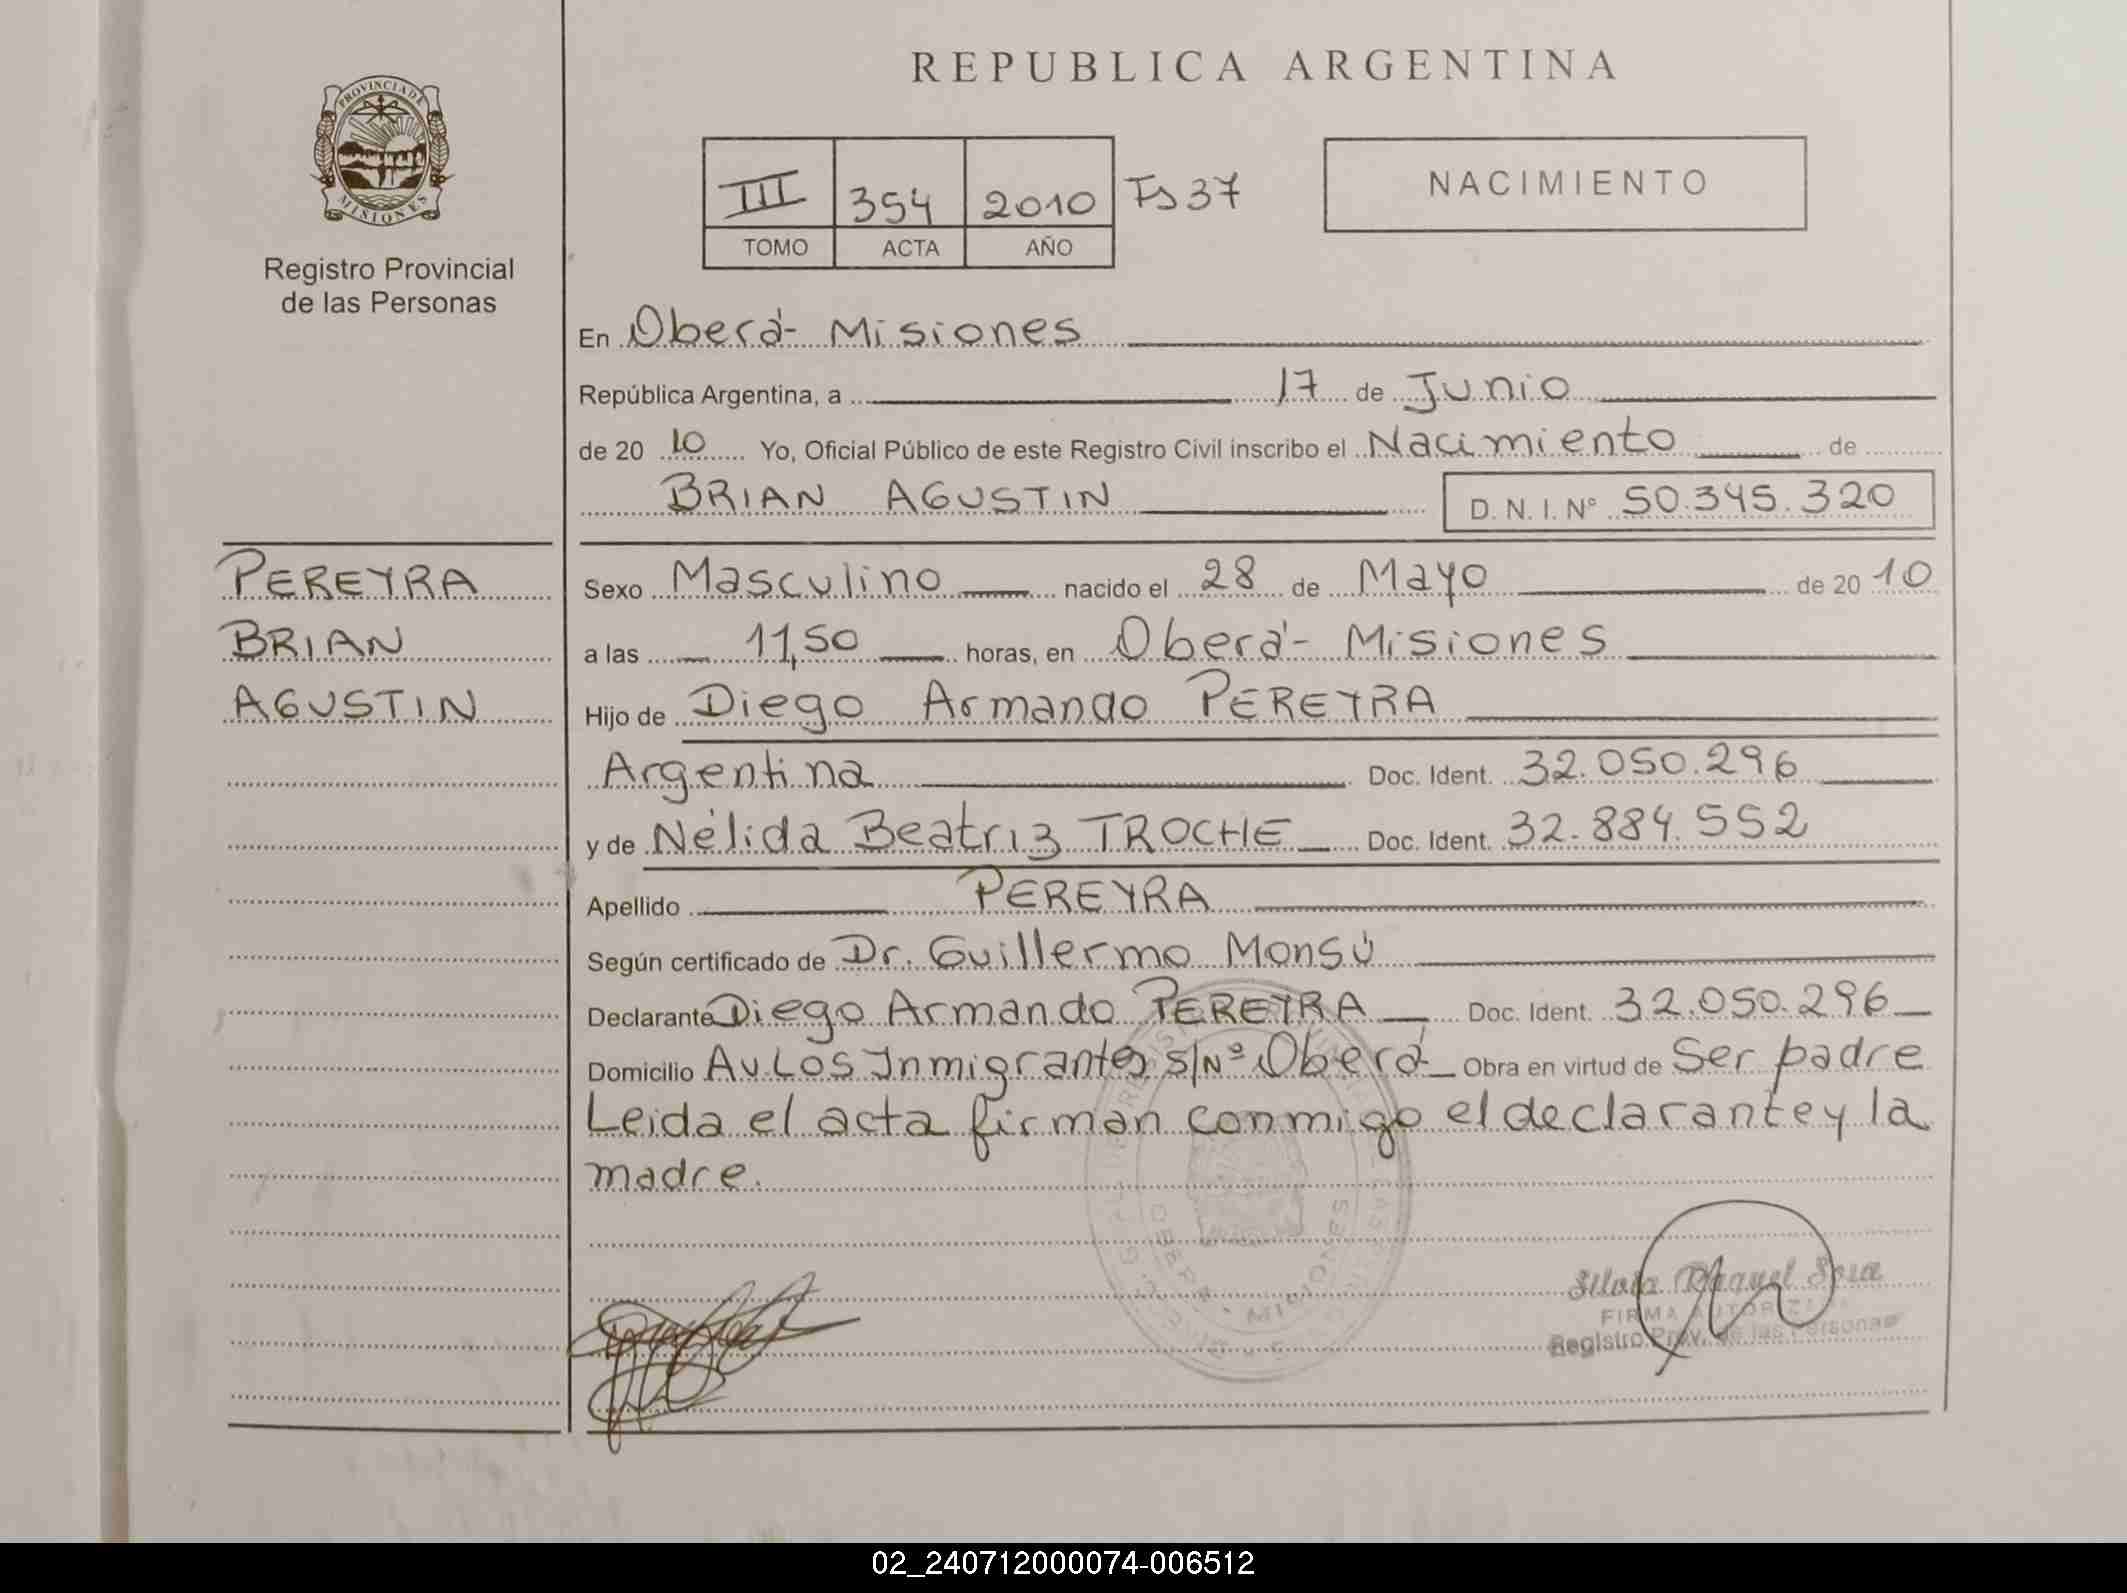 REPUBLICA ARGENTINA
PROVINCIA DE
MISIONES
Registro Provincial
de las Personas
III 354 2010 Fs 37
TOMO ACTA AÑO
NACIMIENTO
En Oberá - Misiones
República Argentina, a 17 de Junio
de 20 10 Yo, Oficial Público de este Registro Civil inscribo el Nacimiento de
BRIAN AGUSTIN D. N. I. Nº 50.345.320
PEREYRA
BRIAN
AGUSTIN
Sexo Masculino nacido el 28 de Mayo de 20 10
a las 11,50 horas, en Oberá - Misiones
Hijo de Diego Armando PEREYRA
Argentina Doc. Ident. 32.050.296
y de Nélida Beatriz TROCHE Doc. Ident. 32.884.552
Apellido PEREYRA
Según certificado de Dr. Guillermo Monsú
Declarante Diego Armando PEREYRA Doc. Ident. 32.050.296
Domicilio Av. Los Inmigrantes s/Nº Oberá Obra en virtud de Ser padre
Leida el acta firman conmigo el declarante y la
madre.
OBERA - MISIONES
Raquel
FIRMA AUTORIZADA
Registro Prov. de las Personas
02_240712000074-006512